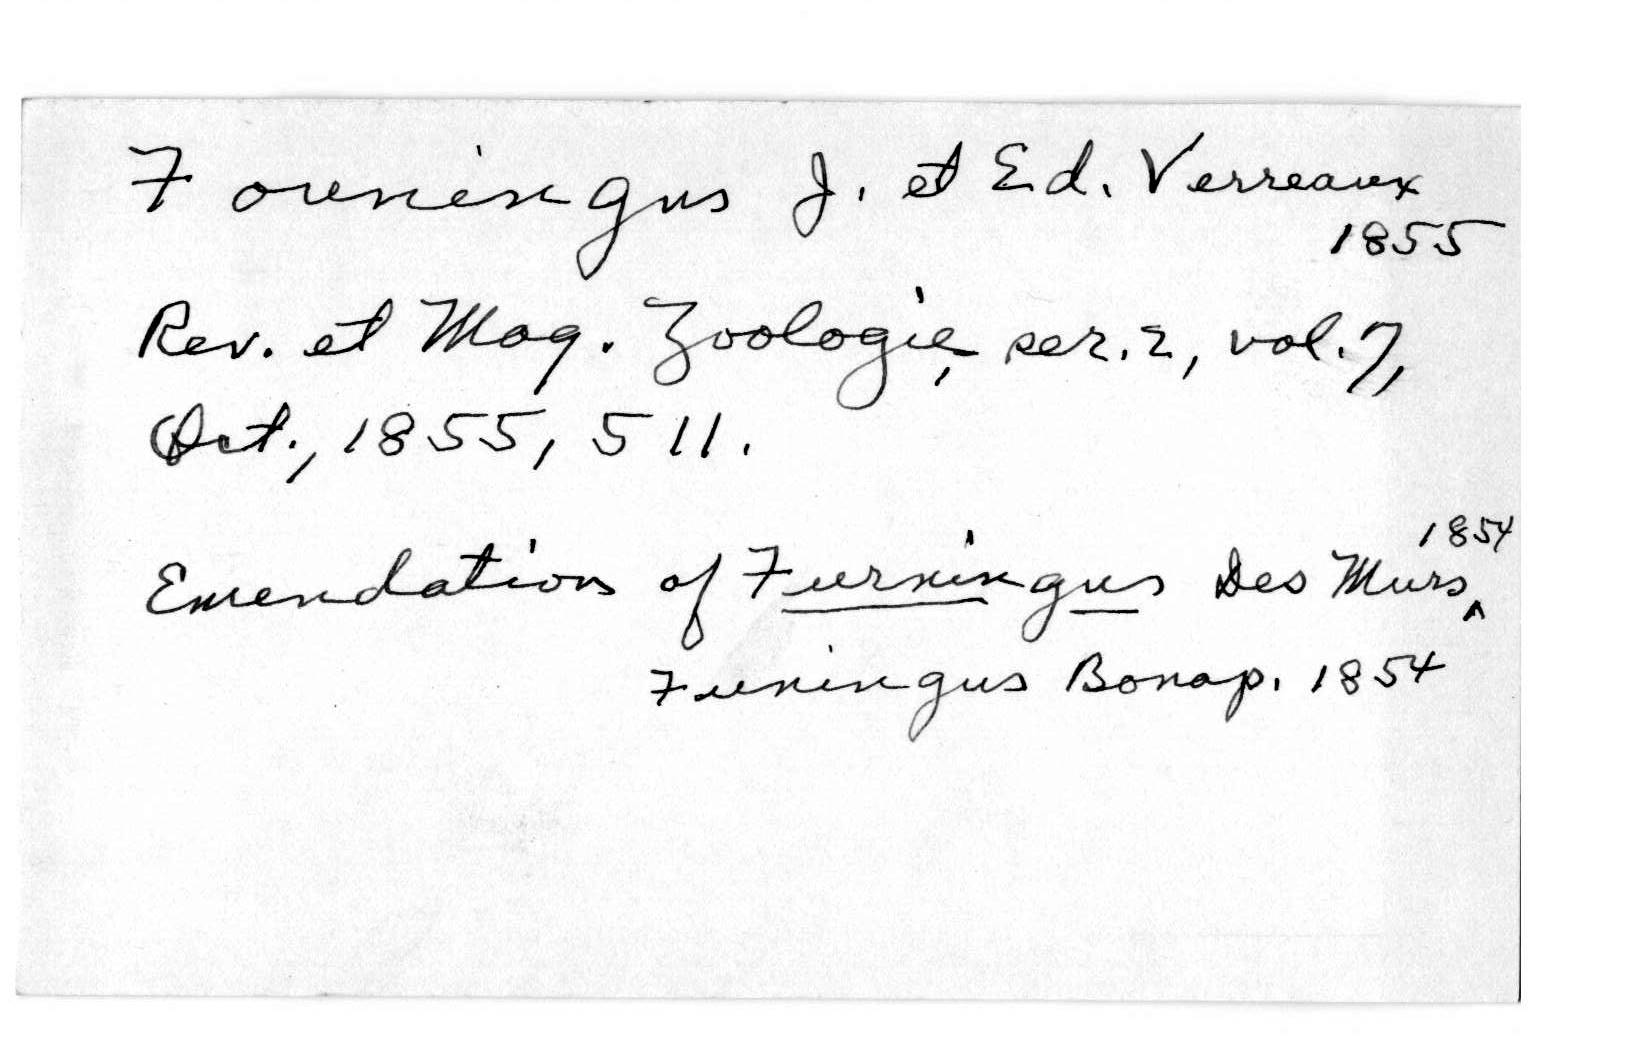 Founingus J. et Ed. Verreaux
1855
Rev. et Mag. Zoologie, ser. 2, vol. 7,
Oct., 1855, 511.
Emendation of Furningus Des Murs 1854
Funingus Bonap. 1854